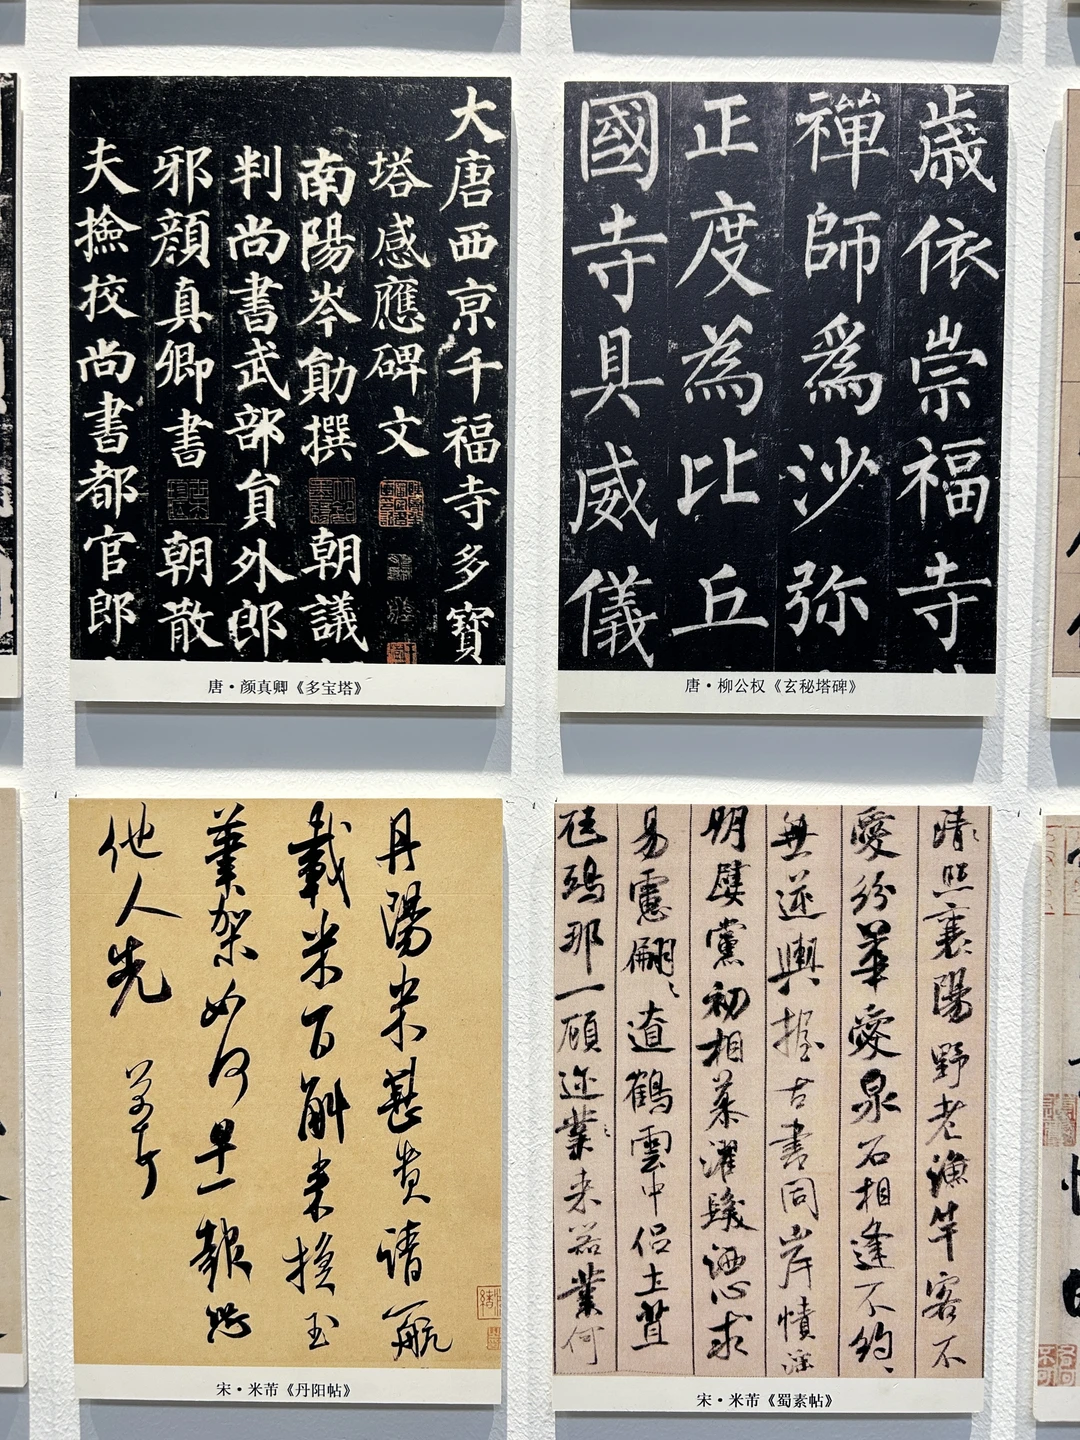 大唐西京千福寺多寶
塔感應碑文
南陽岑勛撰 朝議
判尚書武部員外郎
邪顏真卿書 朝散
夫撿挍尚書都官郎
唐·颜真卿《多宝塔》
歲依崇福寺
禪師爲沙弥
正度為比丘
國寺具威儀
唐·柳公权《玄秘塔碑》
丹陽米甚貴請一航
載米百斛来換玉
筆架如何早一報恐
他人先
芾頓首
宋·米芾《丹阳帖》
清照襄陽野老漁竿客不
愛紛華愛泉石相逢不約々
無逆輿握古書同岸幘淫
朋嬖黨初相慕濯髮洒心求
易慮翩々遼鶴雲中侶土苴
尫鴟那一顧迩業来器業何
宋·米芾《蜀素帖》